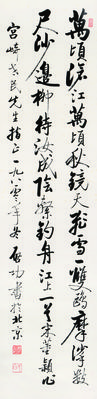 萬頃滄江萬頃秋鏡天飛雪一雙鷗摩挲數
尺沙邊柳待汝成陰繫釣舟江上一首宋董穎
宮崎世民先生指正一九八〇年啟功書於北京